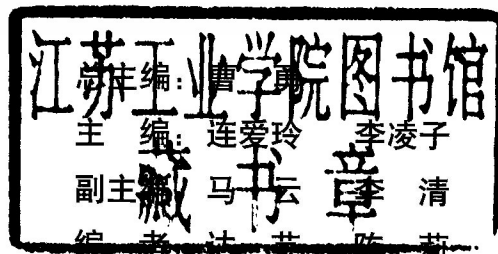 江苏工业学院图书馆
藏书章
总主编：曹勇
主 编：连爱玲 李凌子
副主编 马云 李清
编者